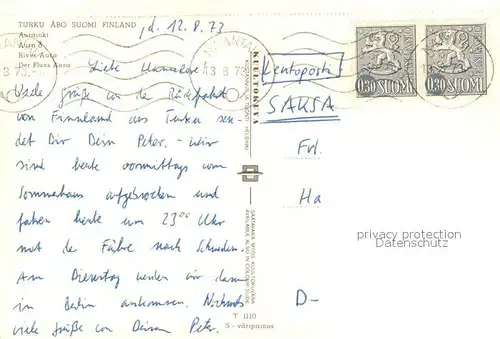 TURKU ÅBO SUOMI FINLAND
Aurajoki
Aura å
River Aura
Der Fluss Aura
d. 12.8.73
Liebe Hannelore!
Viele Grüße von der Rückfahrt
von Finnland aus Turku sen-
det Dir Dein Peter. – Wir
sind heute vormittags vom
Sommerhaus aufgebrochen und
fahren heute um 23⁰⁰ Uhr
mit der Fähre nach Schweden.
Am Dienstag werden wir dann
in Berlin ankommen. Nochmals
viele Grüße von Deinem Peter.
KULTOKUVA
T 1110
S - väripainos
13 8 73
Lentoposti
SAKSA
Frl.
Ha
D-
0,30 SUOMI
0,30 SUOMI
privacy protection
Datenschutz